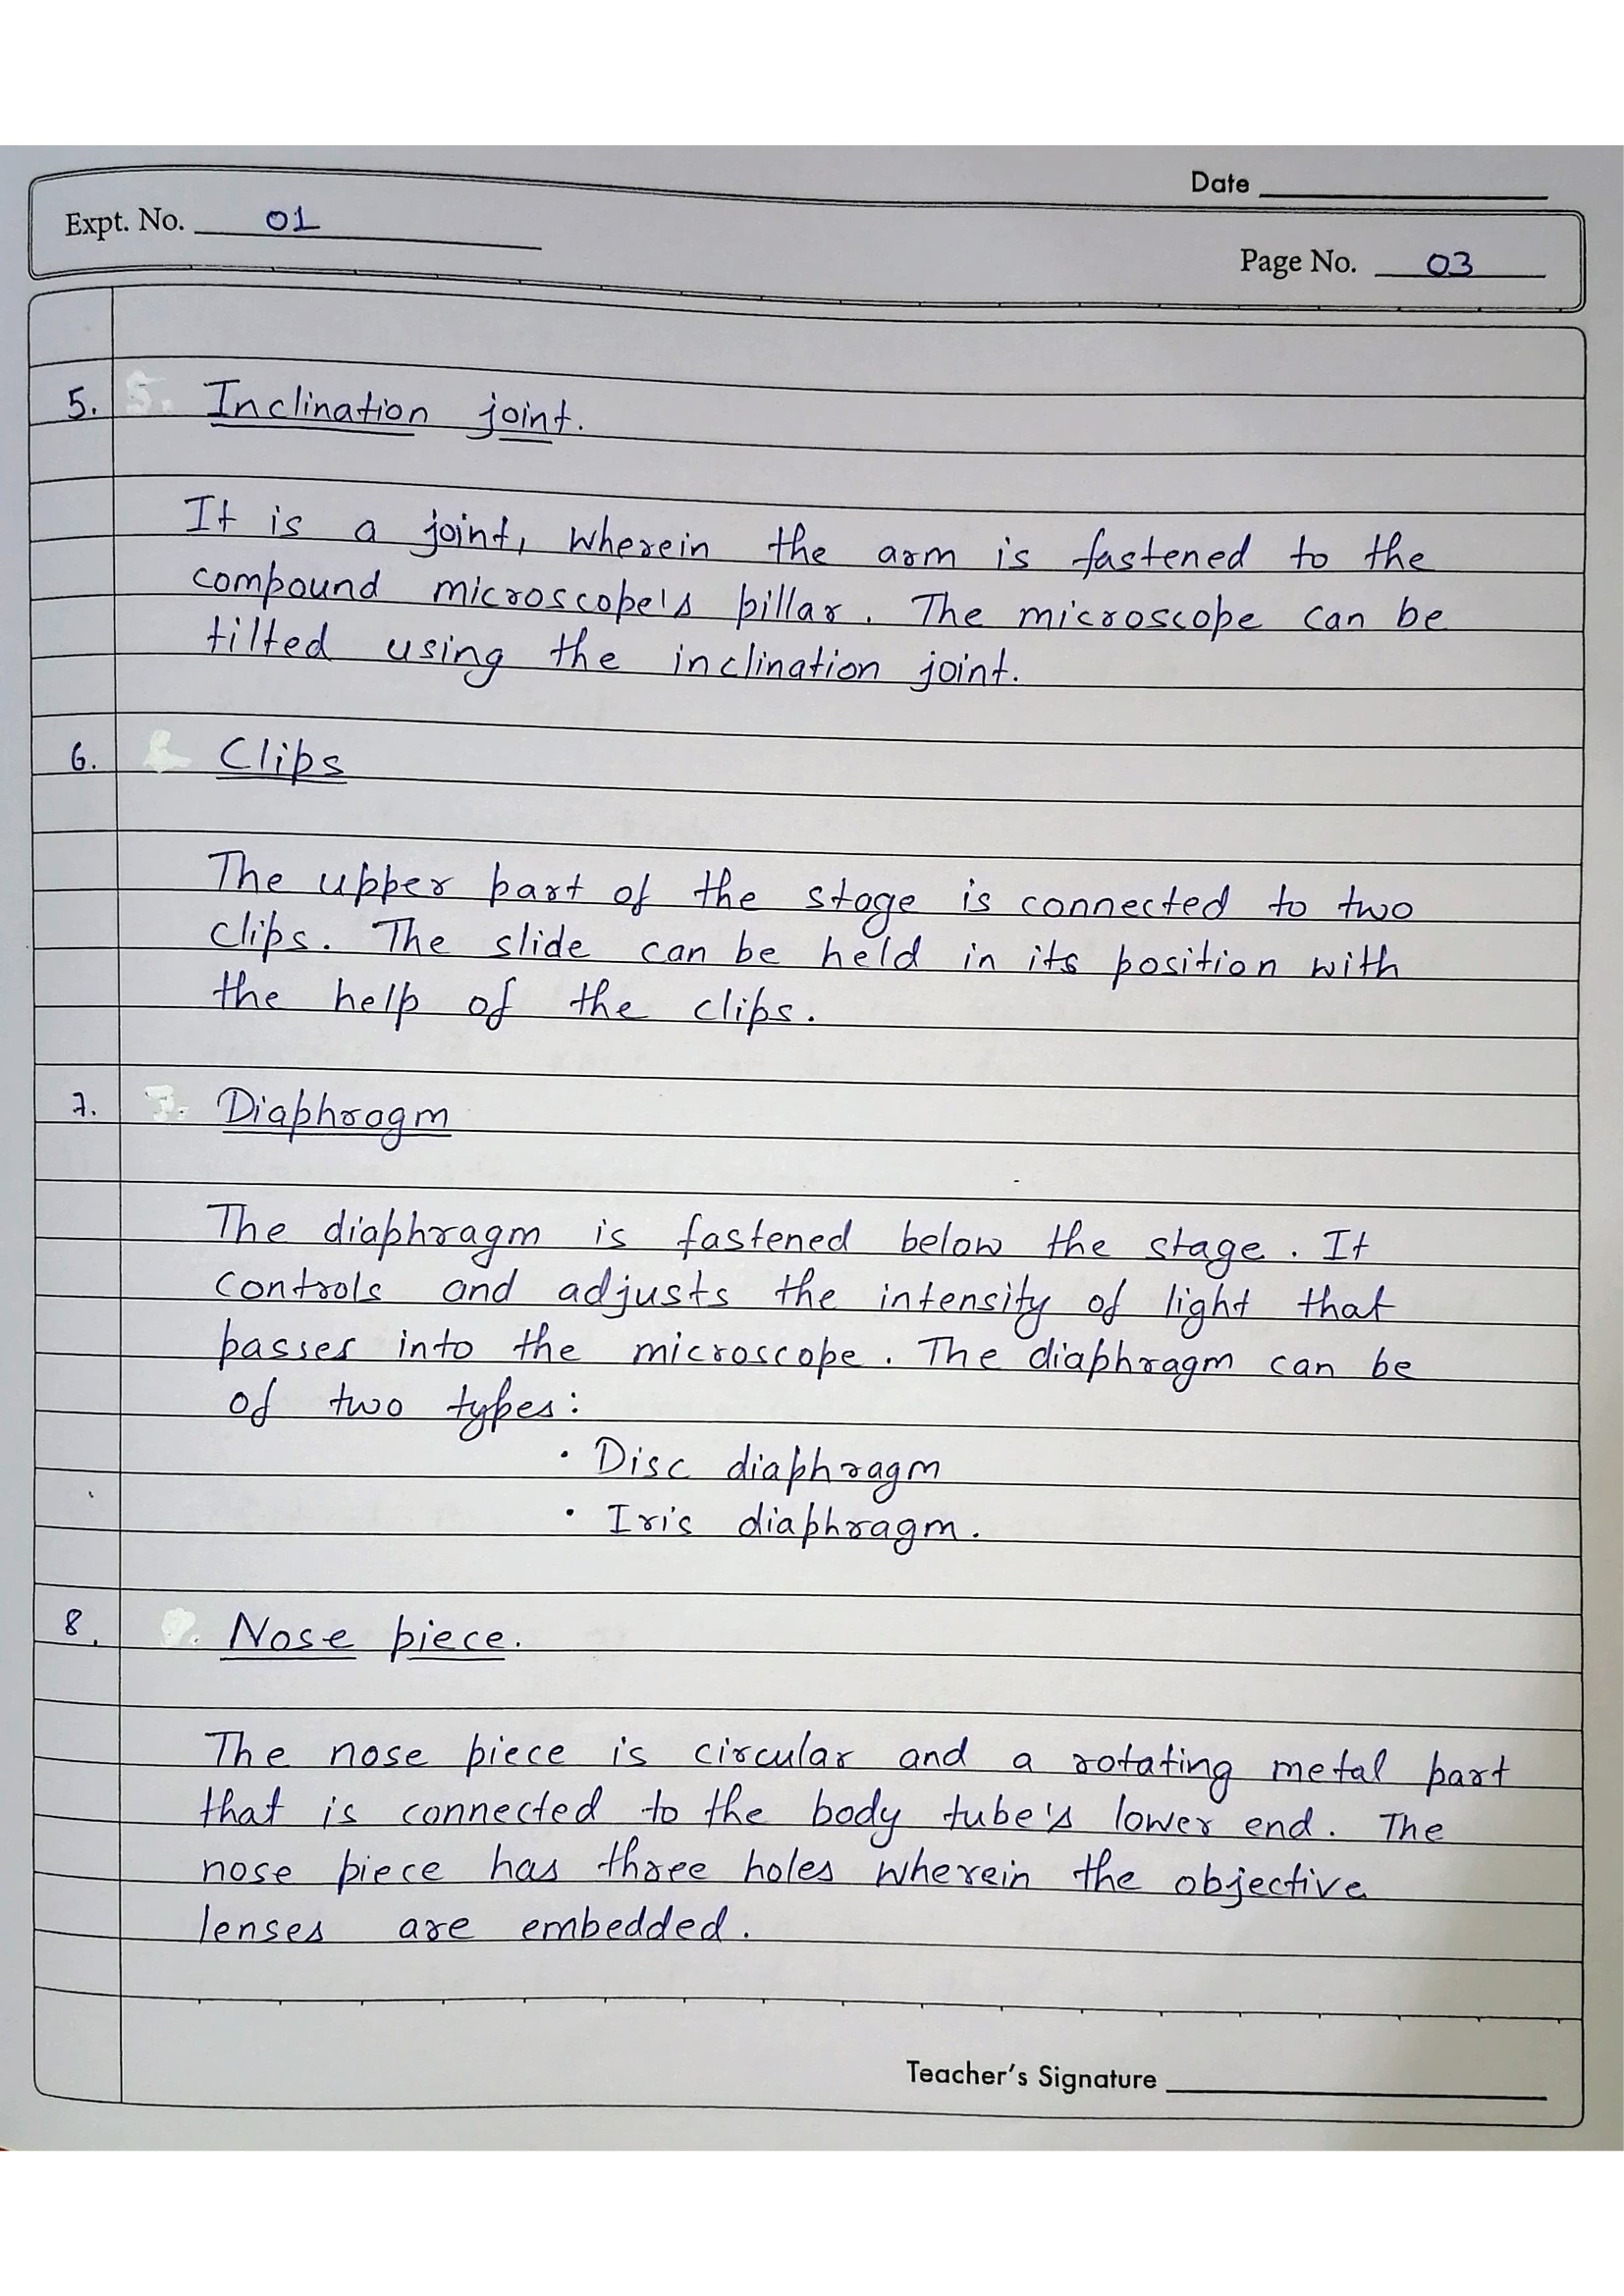 Date
Expt. No. 01
Page No. 03
5. Inclination joint.
It is a joint, wherein the arm is fastened to the
compound microscope's pillar. The microscope can be
tilted using the inclination joint.
6. Clips
The upper part of the stage is connected to two
clips. The slide can be held in its position with
the help of the clips.
7. Diaphragm
The diaphragm is fastened below the stage. It
controls and adjusts the intensity of light that
passes into the microscope. The diaphragm can be
of two types:
• Disc diaphragm
• Iris diaphragm.
8. Nose piece.
The nose piece is circular and a rotating metal part
that is connected to the body tube's lower end. The
nose piece has three holes wherein the objective
lenses are embedded.
Teacher's Signature